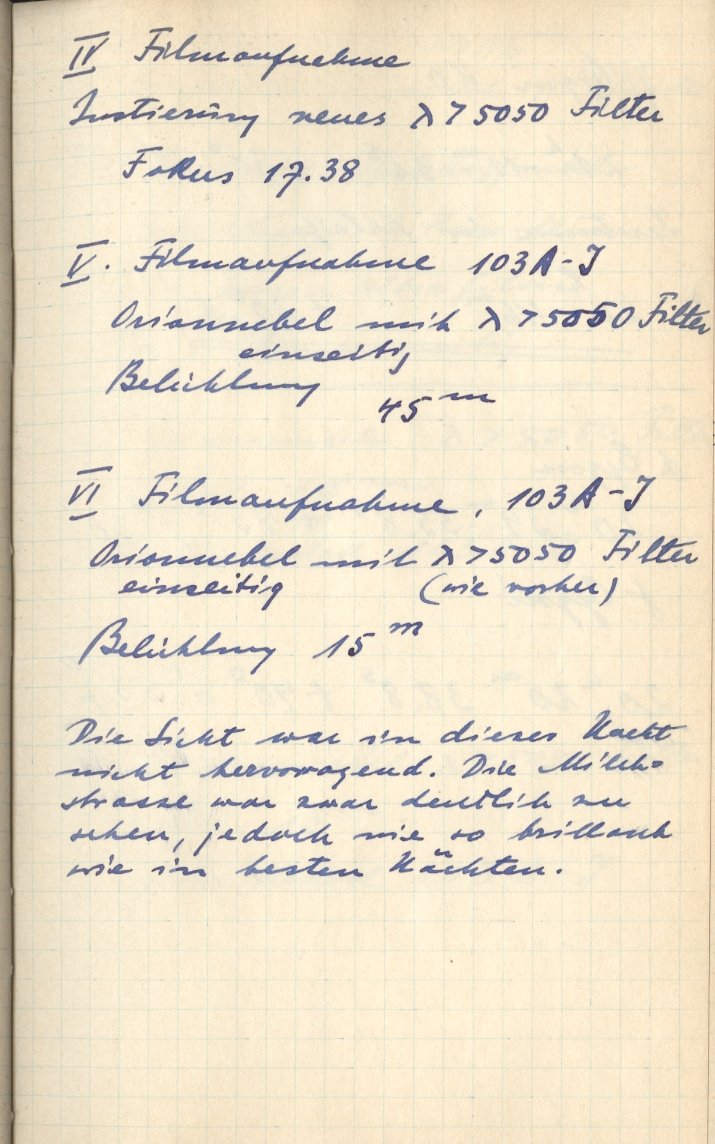 IV Filmaufnahme
Justierung neues λ > 5050 Filter
Fokus 17.38
V. Filmaufnahme 103A-J
Orionnebel mit λ > 5050 Filter
einseitig
Belichtung
45 m
VI Filmaufnahme, 103A-J
Orionnebel mit λ > 5050 Filter
einseitig (wie vorher)
Belichtung 15 m
Die Sicht war in dieser Nacht
nicht hervorragend. Die Milch=
strasse war zwar deutlich zu
sehen, jedoch nie so brillant
wie in besten Nächten.